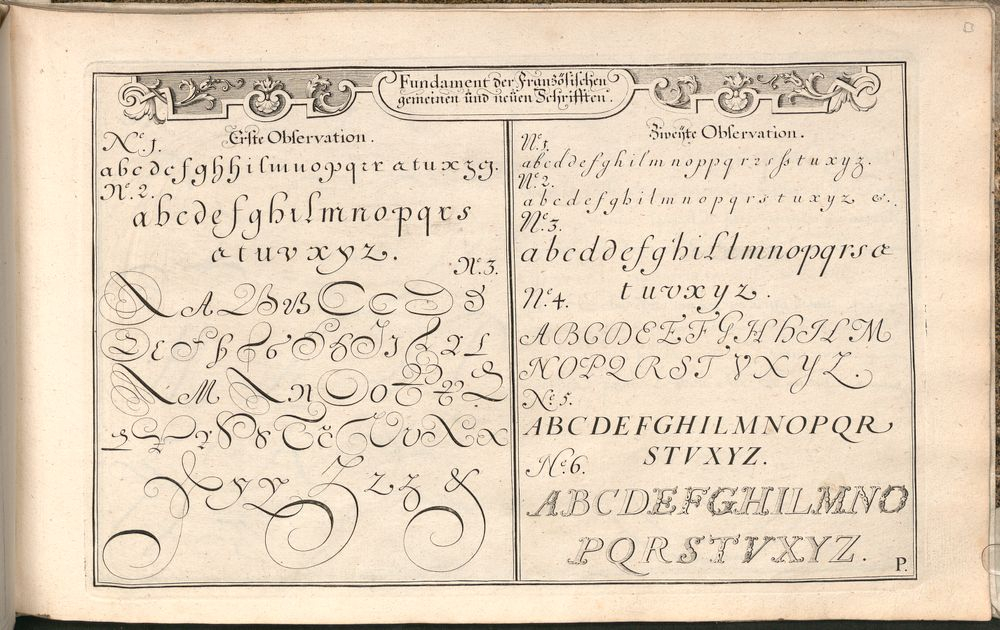 Fundament der Französischen
gemeinen und neuen Schrifften.
Erste Observation.
No. 1.
abcdefghhilmnopqrr atuxzy.
No. 2.
abcdefghilmnopqrs
etuvxyz.
No. 3.
A A B B C C D D
E E F h G G H h I I L L
A M A N O O P P Q
Q R R S S T T U V X x
Y y y Z z z &
Zweÿte Observation.
No. 1.
abcddefghilmnoppqrrsſstuxyz.
No. 2.
abcdefghilmnopqrstuxyz &.
No. 3.
abcddefghilſlmnopqrsæ
tuvxyz.
No. 4.
ABCDEEFGHhILM
NOPQRSTVXYZ.
No. 5.
ABCDEFGHILMNOPQR
STVXYZ.
No. 6.
ABCDEFGHILMNO
PQRSTVXYZ.
P.